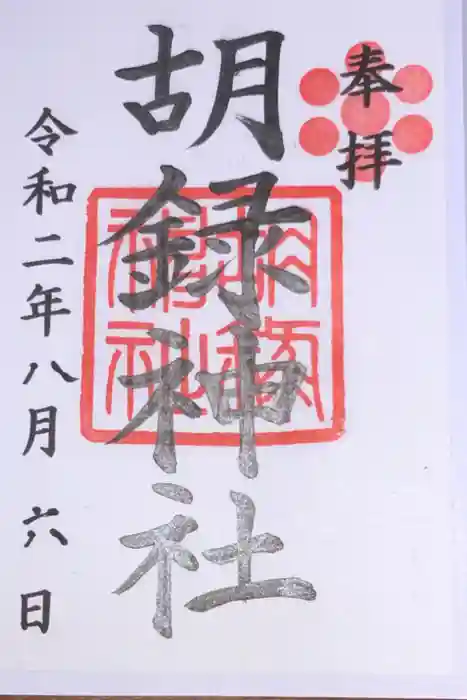 奉拝
胡録神社
令和二年八月六日